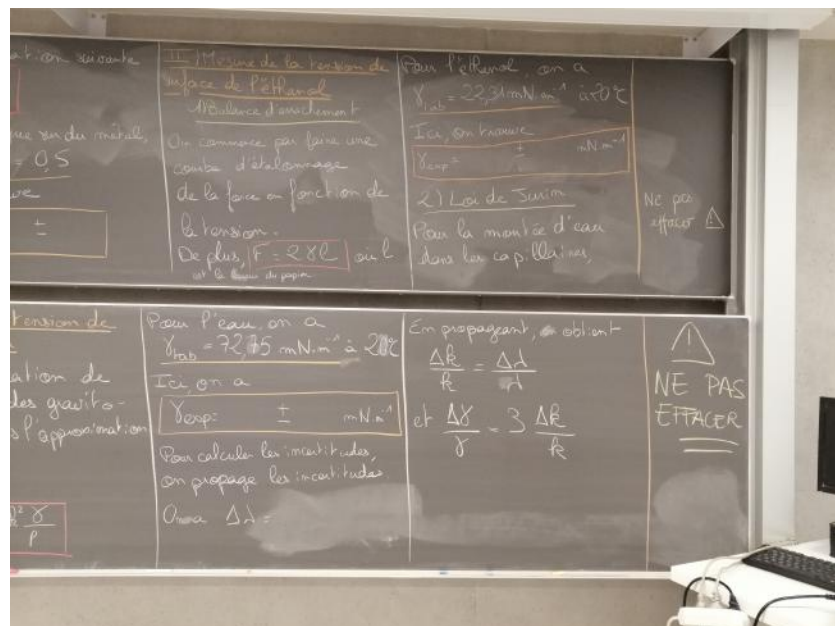 ation suivante
du métal,
= 0,5
±
II) Mesure de la tension de
surface de l'éthanol
1) Balance d'arrachement
On commence par faire une
courbe d'étalonnage
de la force en fonction de
la tension.
De plus, F = 2γl où l
est la du papier
Pour l'éthanol, on a
γtab = 22,31 mN.m⁻¹ à 20°C
Ici, on trouve
γexp = ± mN.m⁻¹
2) Loi de Jurin
Pour la montée d'eau
dans les capillaires,
Ne pas
effacer
tension de
ation de
des gravito-
l'approximation
γ
ρ
Pour l'eau, on a
γtab = 72,75 mN.m⁻¹ à 20°C
Ici, on a
γexp = ± mN.m⁻¹
Pour calculer les incertitudes,
on propage les incertitudes.
On a Δλ =
En propageant, on obtient
Δk/k = Δλ/λ
et Δγ/γ = 3 Δk/k
!
NE PAS
EFFACER